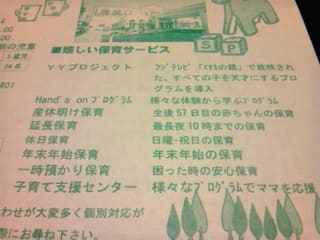 前の児童
5歳児
24名
401
S P
■嬉しい保育サービス
YYプロジェクト フジテレビ「エチカの鏡」で放映され
た、すべての子を天才にするプロ
グラムを導入
Hand's on プログラム 様々な体験から学ぶプログラム
産休明け保育 生後57日目の赤ちゃんの保育
延長保育 最長夜10時までの保育
休日保育 日曜・祝日の保育
年末年始保育 年末年始の保育
一時預かり保育 困った時の安心保育
子育て支援センター 様々なプログラムでママを応援
わせが大変多く個別対応が
際にお尋ね下さい。